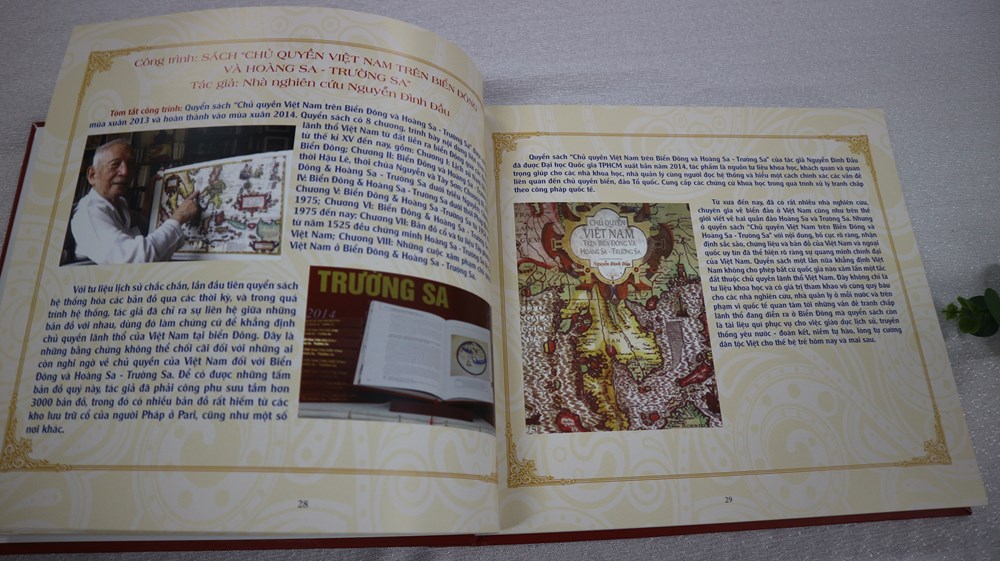 Công trình: SÁCH "CHỦ QUYỀN VIỆT NAM TRÊN BIỂN ĐÔNG
VÀ HOÀNG SA - TRƯỜNG SA"
Tác giả: Nhà nghiên cứu Nguyễn Đình Đầu
Tóm tắt công trình: Quyển sách "Chủ quyền Việt Nam trên Biển Đông và Hoàng Sa - Trường Sa"
mùa xuân 2013 và hoàn thành vào mùa xuân 2014. Quyển sách có 8 chương, trình bày nội dung
lãnh thổ Việt Nam từ đất liền ra biển Đông
từ thế kỉ XV đến nay, gồm: Chương I: Lịch sử
Biển Đông; Chương II: Biển Đông và Hoàng Sa
thời Hậu Lê, thời chúa Nguyễn và Tây Sơn; Chương
Đông & Hoàng Sa - Trường Sa dưới triều Nguyễn
IV: Biển Đông & Hoàng Sa - Trường Sa dưới thời
Chương V: Biển Đông & Hoàng Sa - Trường Sa từ
1975; Chương VI: Biển Đông & Hoàng Sa -
1975 đến nay; Chương VII: Bản đồ cổ và tư liệu
từ năm 1525 đều chứng minh Hoàng Sa - Trường
Việt Nam; Chương VIII: Những cuộc xâm phạm chủ
Việt Nam ở Biển Đông & Hoàng Sa - Trường Sa.
Với tư liệu lịch sử chắc chắn, lần đầu tiên quyển sách
hệ thống hóa các bản đồ qua các thời kỳ, và trong quá
trình hệ thống, tác giả đã chỉ ra sự liên hệ giữa những
bản đồ với nhau, dùng đó làm chứng cứ để khẳng định
chủ quyền lãnh thổ của Việt Nam tại biển Đông. Đây là
những bằng chứng không thể chối cãi đối với những ai
còn nghi ngờ về chủ quyền của Việt Nam đối với Biển
Đông và Hoàng Sa - Trường Sa. Để có được những tấm
bản đồ quý này, tác giả đã phải công phu sưu tầm hơn
3000 bản đồ, trong đó có nhiều bản đồ rất hiếm từ các
kho lưu trữ cổ của người Pháp ở Pari, cũng như một số
nơi khác.
TRƯỜNG SA
2014
28
Quyển sách "Chủ quyền Việt Nam trên Biển Đông và Hoàng Sa - Trường Sa" của tác giả Nguyễn Đình Đầu
đã được Đại học Quốc gia TPHCM xuất bản năm 2014, tác phẩm là nguồn tư liệu khoa học, khách quan và quan
trọng giúp cho các nhà khoa học, nhà quản lý cùng người đọc hệ thống và hiểu một cách chính xác các vấn đề
liên quan đến chủ quyền biển, đảo Tổ quốc. Cung cấp các chứng cứ khoa học trong quá trình xử lý tranh chấp
theo công pháp quốc tế.
Từ xưa đến nay, đã có rất nhiều nhà nghiên cứu,
chuyên gia về biển đảo ở Việt Nam cũng như trên thế
giới viết về hai quần đảo Hoàng Sa và Trường Sa. Nhưng
ở quyển sách "Chủ quyền Việt Nam trên Biển Đông và
Hoàng Sa - Trường Sa" với nội dung, bố cục rõ ràng, nhận
định sắc sảo, chứng liệu và bản đồ của Việt Nam và ngoại
quốc uy tín đã thể hiện rõ ràng sự quang minh chính đại
của Việt Nam. Quyển sách một lần nữa khẳng định Việt
Nam không cho phép bất cứ quốc gia nào xâm lấn một tấc
đất thuộc chủ quyền lãnh thổ Việt Nam. Đây không chỉ là
tư liệu khoa học và có giá trị tham khảo vô cùng quý báu
cho các nhà nghiên cứu, nhà quản lý ở mỗi nước và trên
phạm vi quốc tế quan tâm tới những vấn đề tranh chấp
lãnh thổ đang diễn ra ở Biển Đông mà quyển sách còn
là tài liệu quí phục vụ cho việc giáo dục lịch sử, truyền
thống yêu nước - đoàn kết, niềm tự hào, lòng tự cường
dân tộc Việt cho thế hệ trẻ hôm nay và mai sau.
CHỦ QUYỀN
VIỆT NAM
TRÊN BIỂN ĐÔNG VÀ
HOÀNG SA - TRƯỜNG SA
Nguyễn Đình Đầu
29